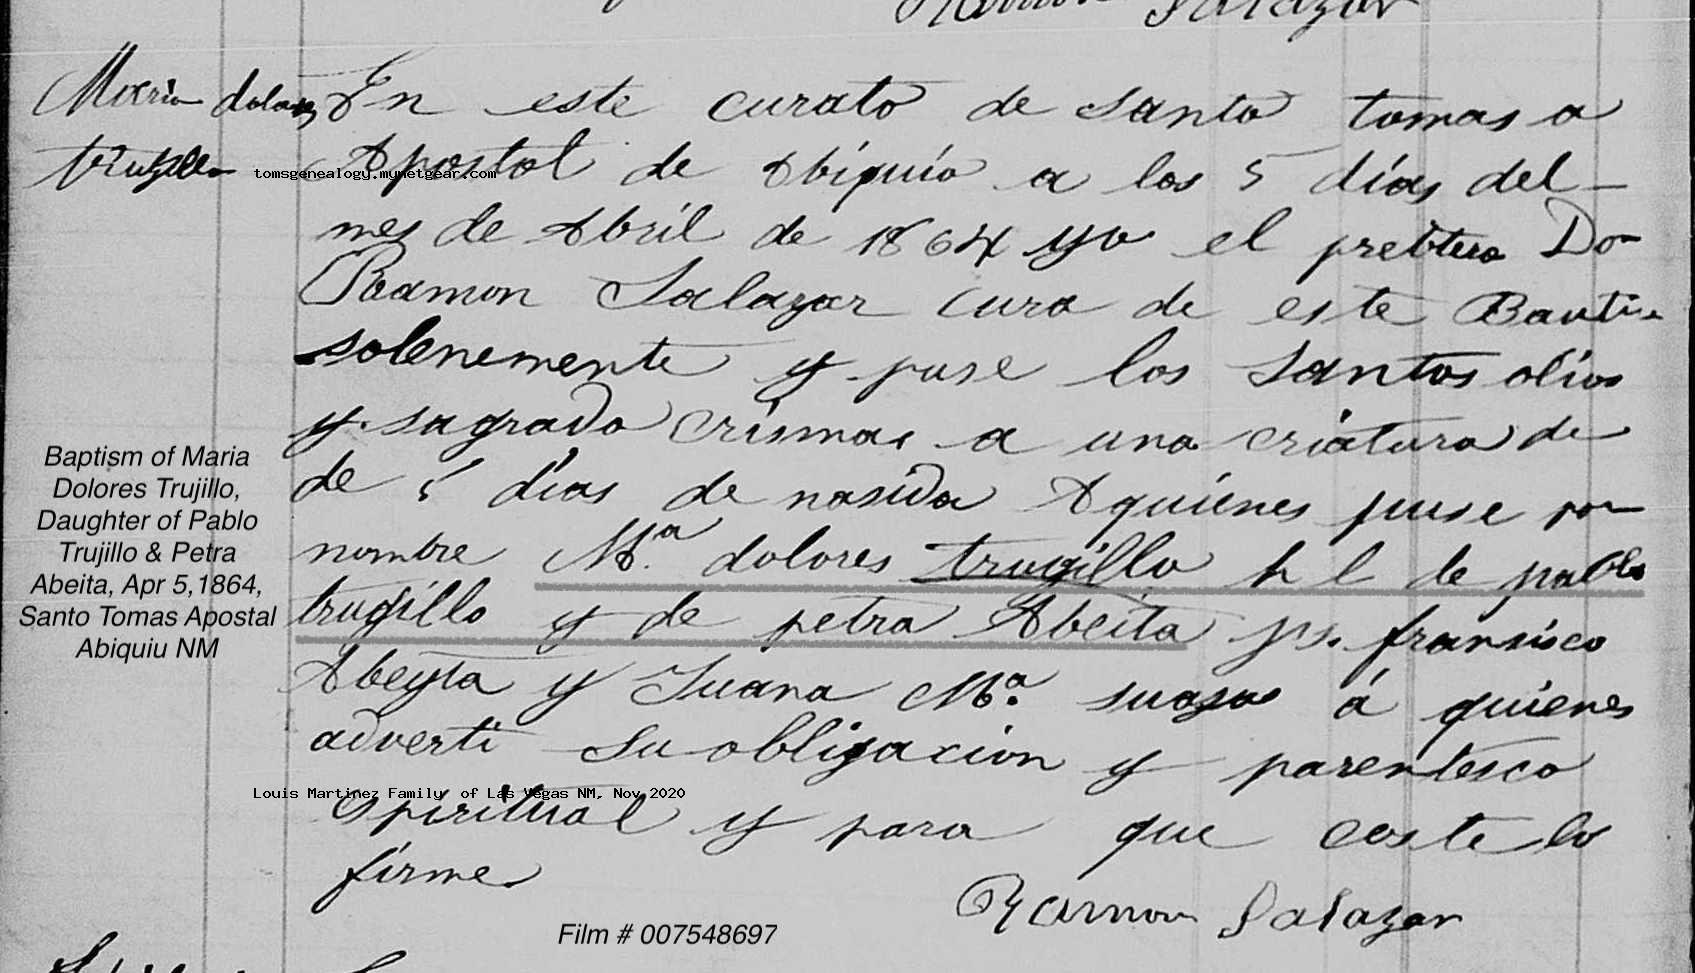 Ramon Salazar
Maria dolores
trugillo
En este curato de Santo tomas a
Apostol de Abiquio a los 5 días del
mes de Abril de 1864 yo el prebtero Dn
Ramon Salazar cura de este Bautise
solenemente y puse los santos olios
y sagrado crismas a una criatura de
de 5 días de nasida Aquienes puse por
nombre Ma. dolores trugillo h l de pablo
trugillo y de petra Abeita ps. fransisco
Abeyta y Juana Ma. suaso á quienes
adverti su obligacion y parentesco
Spiritual y para que coste lo
firme
Ramon Salazar
tomsgenealogy.mynetgear.com
Baptism of Maria
Dolores Trujillo,
Daughter of Pablo
Trujillo & Petra
Abeita, Apr 5,1864,
Santo Tomas Apostal
Abiquiu NM
Louis Martinez Family of Las Vegas NM, Nov 2020
Film # 007548697